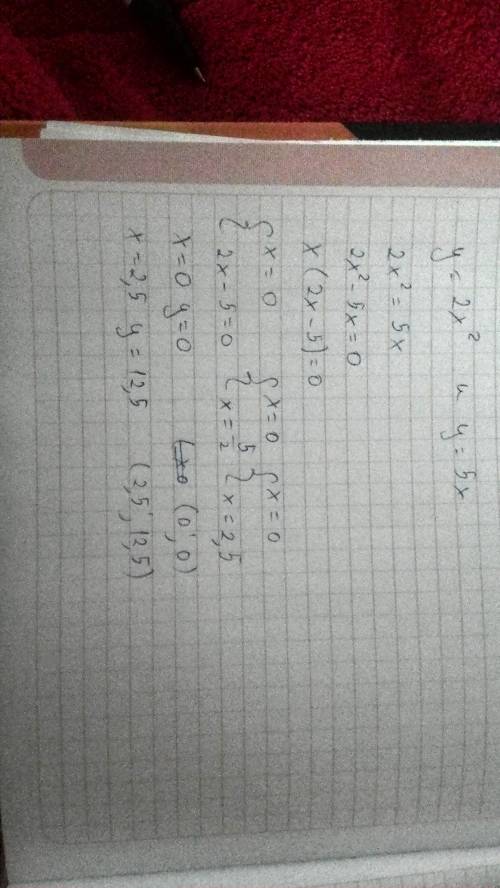 y = 2x² и y = 5x
2x² = 5x
2x² - 5x = 0
x (2x - 5) = 0
{ x = 0 { x = 0 { x = 0
{ 2x - 5 = 0 { x = 5/2 { x = 2,5
x = 0 y = 0 (0; 0)
x = 2,5 y = 12,5 (2,5; 12,5)